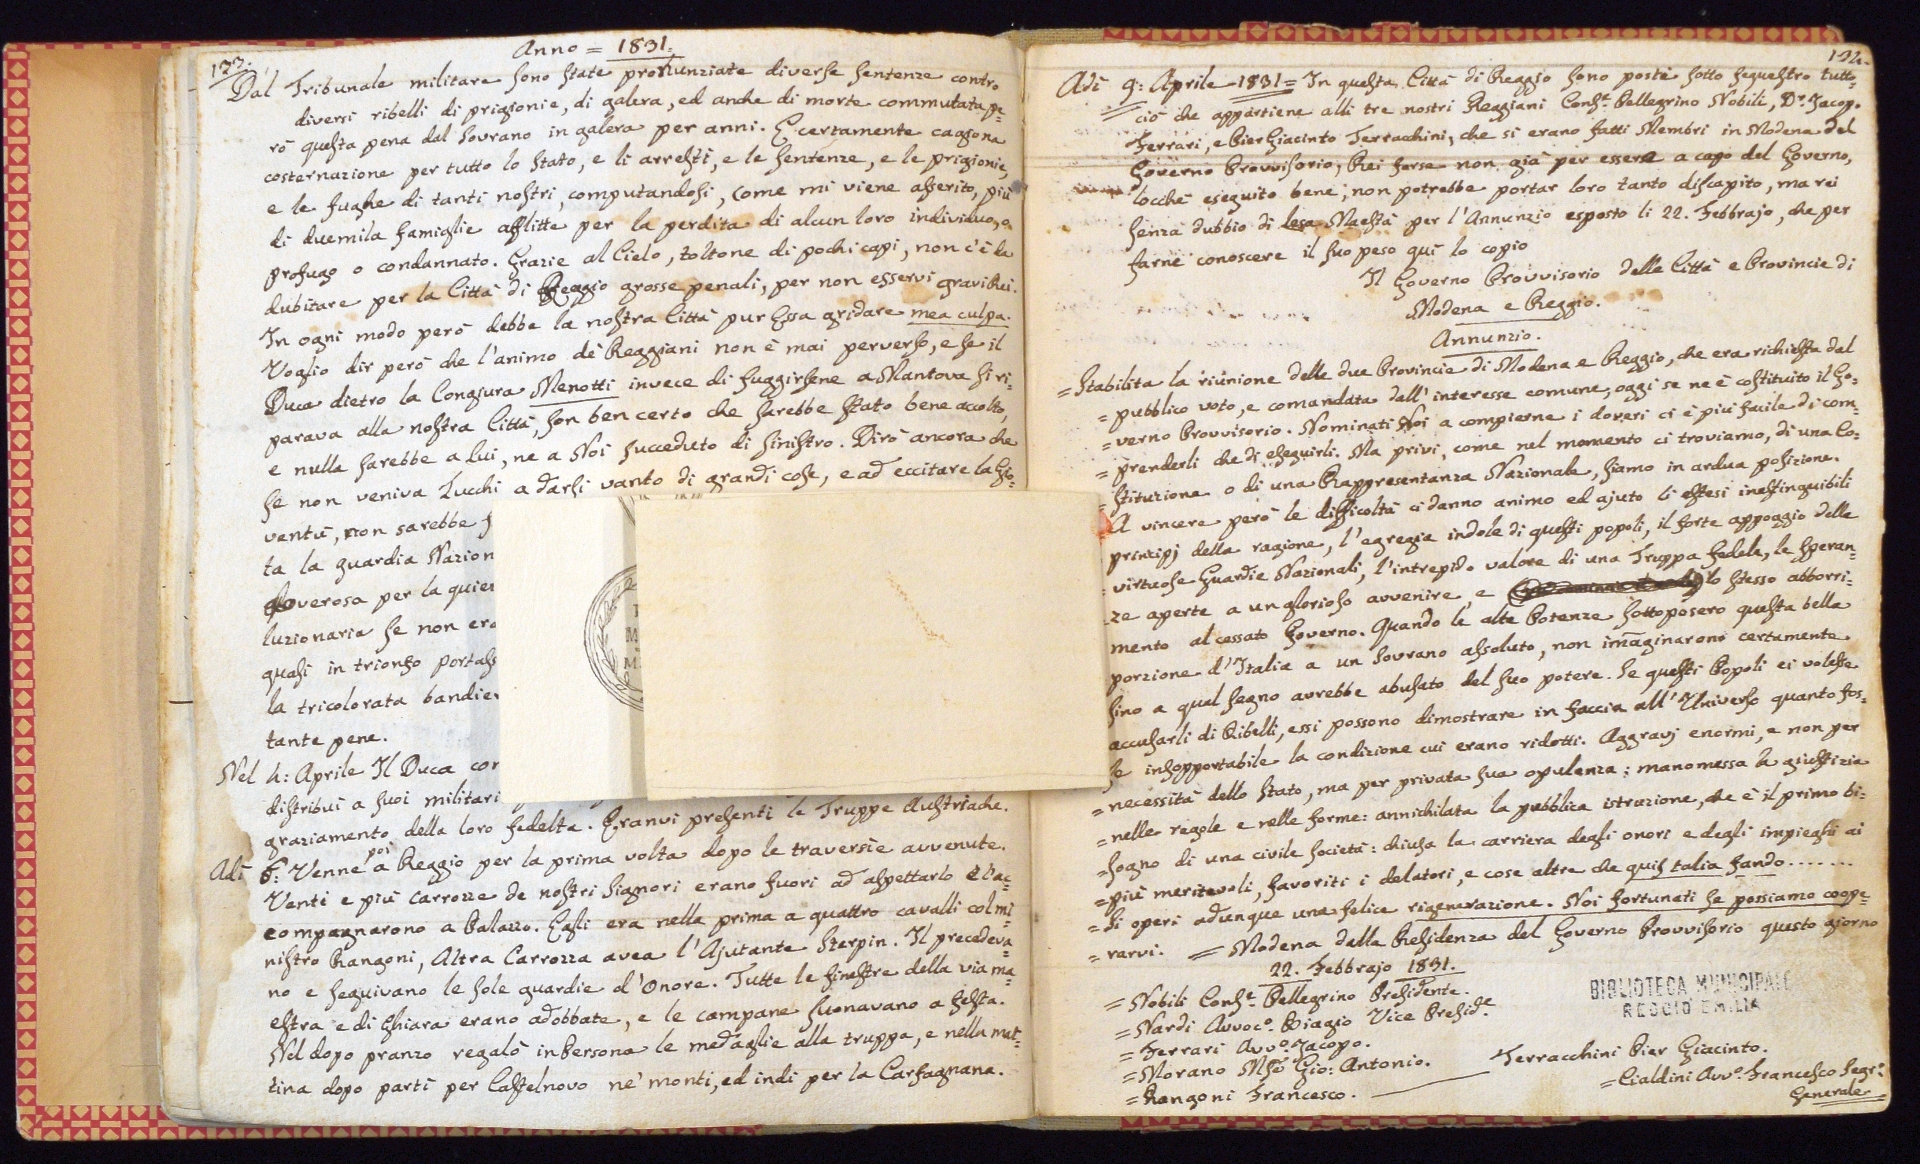 Anno = 1831.
133.
Dal Tribunale militare sono state pronunziate diverse sentenze contro
diversi ribelli di prigionie, di galera, ed anche di morte commutata pe-
rò questa pena dal Sovrano in galera per anni. E certamente cagiona
costernazione per tutto lo Stato, e li arresti, e le sentenze, e le prigionie,
e le fughe di tanti nostri, computandosi, come mi viene asserito, più
di duemila famiglie afflitte per la perdita di alcun loro individuo, o
profugo o condannato. Grazie al Cielo, toltone di pochi capi, non c'è da
dubitare per la Città di Reggio grosse penali, per non esservi gravi Rei.
In ogni modo però debbe la nostra Città pur Essa gridare mea culpa.
Voglio dir però che l'animo de' Reggiani non è mai perverso, e se il
Duca dietro la Congiura Menotti invece di fuggirsene a Mantova si ri-
parava alla nostra Città, son ben certo che sarebbe stato bene accolto,
e nulla sarebbe a lui, ne a Noi succeduto di sinistro. Dirò ancora che
se non veniva Zucchi a darsi vanto di grandi cose, e ad eccitare la Gio-
ventù, non sarebbe
ta la guardia Nazion
doverosa per la quie
luzionaria se non er
quasi in trionfo portas
la tricolorata bandie
tante pene.
Nel 4: Aprile Il Duca con
distribuì a suoi militari
graziamento della loro fedeltà. Eranvi presenti le Truppe Austriache.
Adì 6: Venne poi a Reggio per la prima volta dopo le traversie avvenute.
Venti e più carrozze de nostri Signori erano fuori ad aspettarlo e l'ac-
compagnarono a Palazzo. Egli era nella prima a quattro cavalli col mi-
nistro Rangoni, Altra Carrozza avea l'Ajutante Sterpin. Il precedeva-
no e seguivano le sole guardie d'Onore. Tutte le finestre della via ma-
estra e di Ghiara erano adobbate, e le campane suonavano a festa.
Nel dopo pranzo regalò in Persona le medaglie alla truppa, e nella mat-
tina dopo partì per Castelnovo ne' monti, ed indi per la Garfagnana.
Adì 9: Aprile 1831 = In questa Città di Reggio sono posti sotto sequestro tutto
ciò che appartiene alli tre nostri Reggiani Cons.e Pellegrino Nobili, Dr. Jacop.
Ferrari, e Pier Giacinto Terracchini, che si erano fatti Membri in Modena del
Governo Provvisorio, Rei forse non già per essere a capo del Governo,
locchè eseguito bene, non potrebbe portar loro tanto discapito, ma rei
senza dubbio di lesa Maestà per l'Annunzio esposto li 22. Febbrajo, che per
farne conoscere il suo peso quì lo copio
Il Governo Provvisorio delle Città e Provincie di
Modena e Reggio.
Annunzio.
= Stabilita la riunione delle due Provincie di Modena e Reggio, che era richiesta dal
= pubblico voto, e comandata dall'interesse comune, oggi se ne è costituito il Go-
= verno Provvisorio. Nominati Noi a compierne i doveri ci è più facile di com-
= prenderli che di eseguirli. Ma privi, come nel momento ci troviamo, di una Co-
= stituzione o di una Rappresentanza Nazionale, siamo in ardua posizione.
A vincere però le difficoltà ci danno animo ed ajuto li estesi inestinguibili
principj della ragione, l'egregia indole di questi popoli, il forte appoggio delle
virtuose Guardie Nazionali, l'intrepido valore di una Truppa fedele, le speran-
ze aperte a un glorioso avvenire, e lo stesso abborri-
mento al cessato Governo. Quando le alte Potenze sottoposero questa bella
porzione d'Italia a un Sovrano assoluto, non imaginarono certamente
sino a qual segno avrebbe abusato del suo potere. Se questi Popoli ei volesse
accusarli di Ribelli, essi possono dimostrare in faccia all'Universo quanto fos-
se insopportabile la condizione cui erano ridotti. Aggravj enormi, e non per
= necessità dello Stato, ma per privata sua opulenza; manomessa la giustizia
= nelle regole e nelle forme: annichilata la pubblica istrazione, che è il primo bi-
= sogno di una civile società: chiusa la carriera degli onori e degli impieghi ai
= più meritevoli, favoriti i delatori, e cose altre che quis talia fando.......
= Si operi adunque una felice rigenerazione. Noi fortunati se possiamo coope-
= rarvi. = Modena dalla Residenza del Governo Provvisorio questo giorno
22. Febbrajo 1831.
= Nobili Cons.e Pellegrino Presidente.
= Nardi Avvoc.o Biagio Vice Presid.e
= Ferrari Avv.o Jacopo.
= Morano Gio: Antonio.
= Rangoni Francesco.
Terracchini Pier Giacinto.
= Cialdini Avv.o Francesco Segr.o
Generale
BIBLIOTECA MUNICIPALE
REGGIO EMILIA